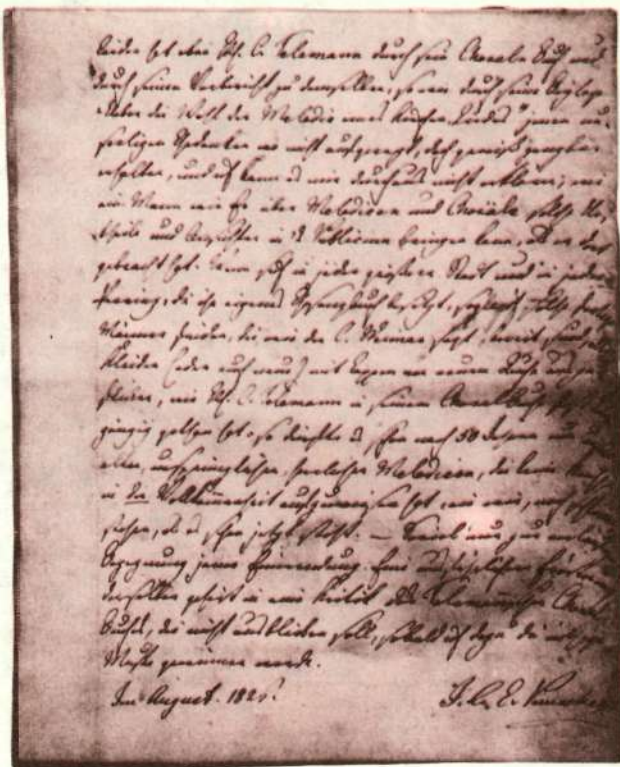 leider hat aber H. C. Telemann durch sein Choral Buch und
durch seinen Vorbericht zu demselben, so wie durch seine Beylage
„Ueber die Wahl der Melodie eines Kirchen Liedes" jenen un-
seeligen Gedanken wo nicht aufgeregt, doch gewiß gangbar
erhalten, und ich kann es mir durchaus nicht erklären, wie
ein Mann wie Er über Melodieen und Choräle solche Ur-
theile und Ansichten in's Publicum bringen kann, als er dort
gebracht hat. Wenn sich in jeder größern Stadt und in jeder
Provinz, die ihr eigenes Gesangbuch besitzt, sogleich solche
Männer finden, die wie C. Weimar sagt, bereit sind
Kleider (oder auch neue) mit Lappen von neuem Tuche
flicken, wie H. C. Telemann in seinem Choral Buch
gängig gethan hat, so dürfte es schon nach 50 Jahren um
alten, ursprünglichen, herrlichen Melodieen, die keine
in der Vollkommenheit aufzuweisen hat, wie wir, noch
stehen, als es schon jetzt steht. – Soviel nur zur
Begegnung jener Einwendung. Eine ausführlichere
derselben gehört in eine Kritik des Telemannschen Choral
Buches, die nicht ausbleiben soll, sobald ich dazu die nöthige
Muße gewinnen werde.
Im August. 1821.
J. C. E.